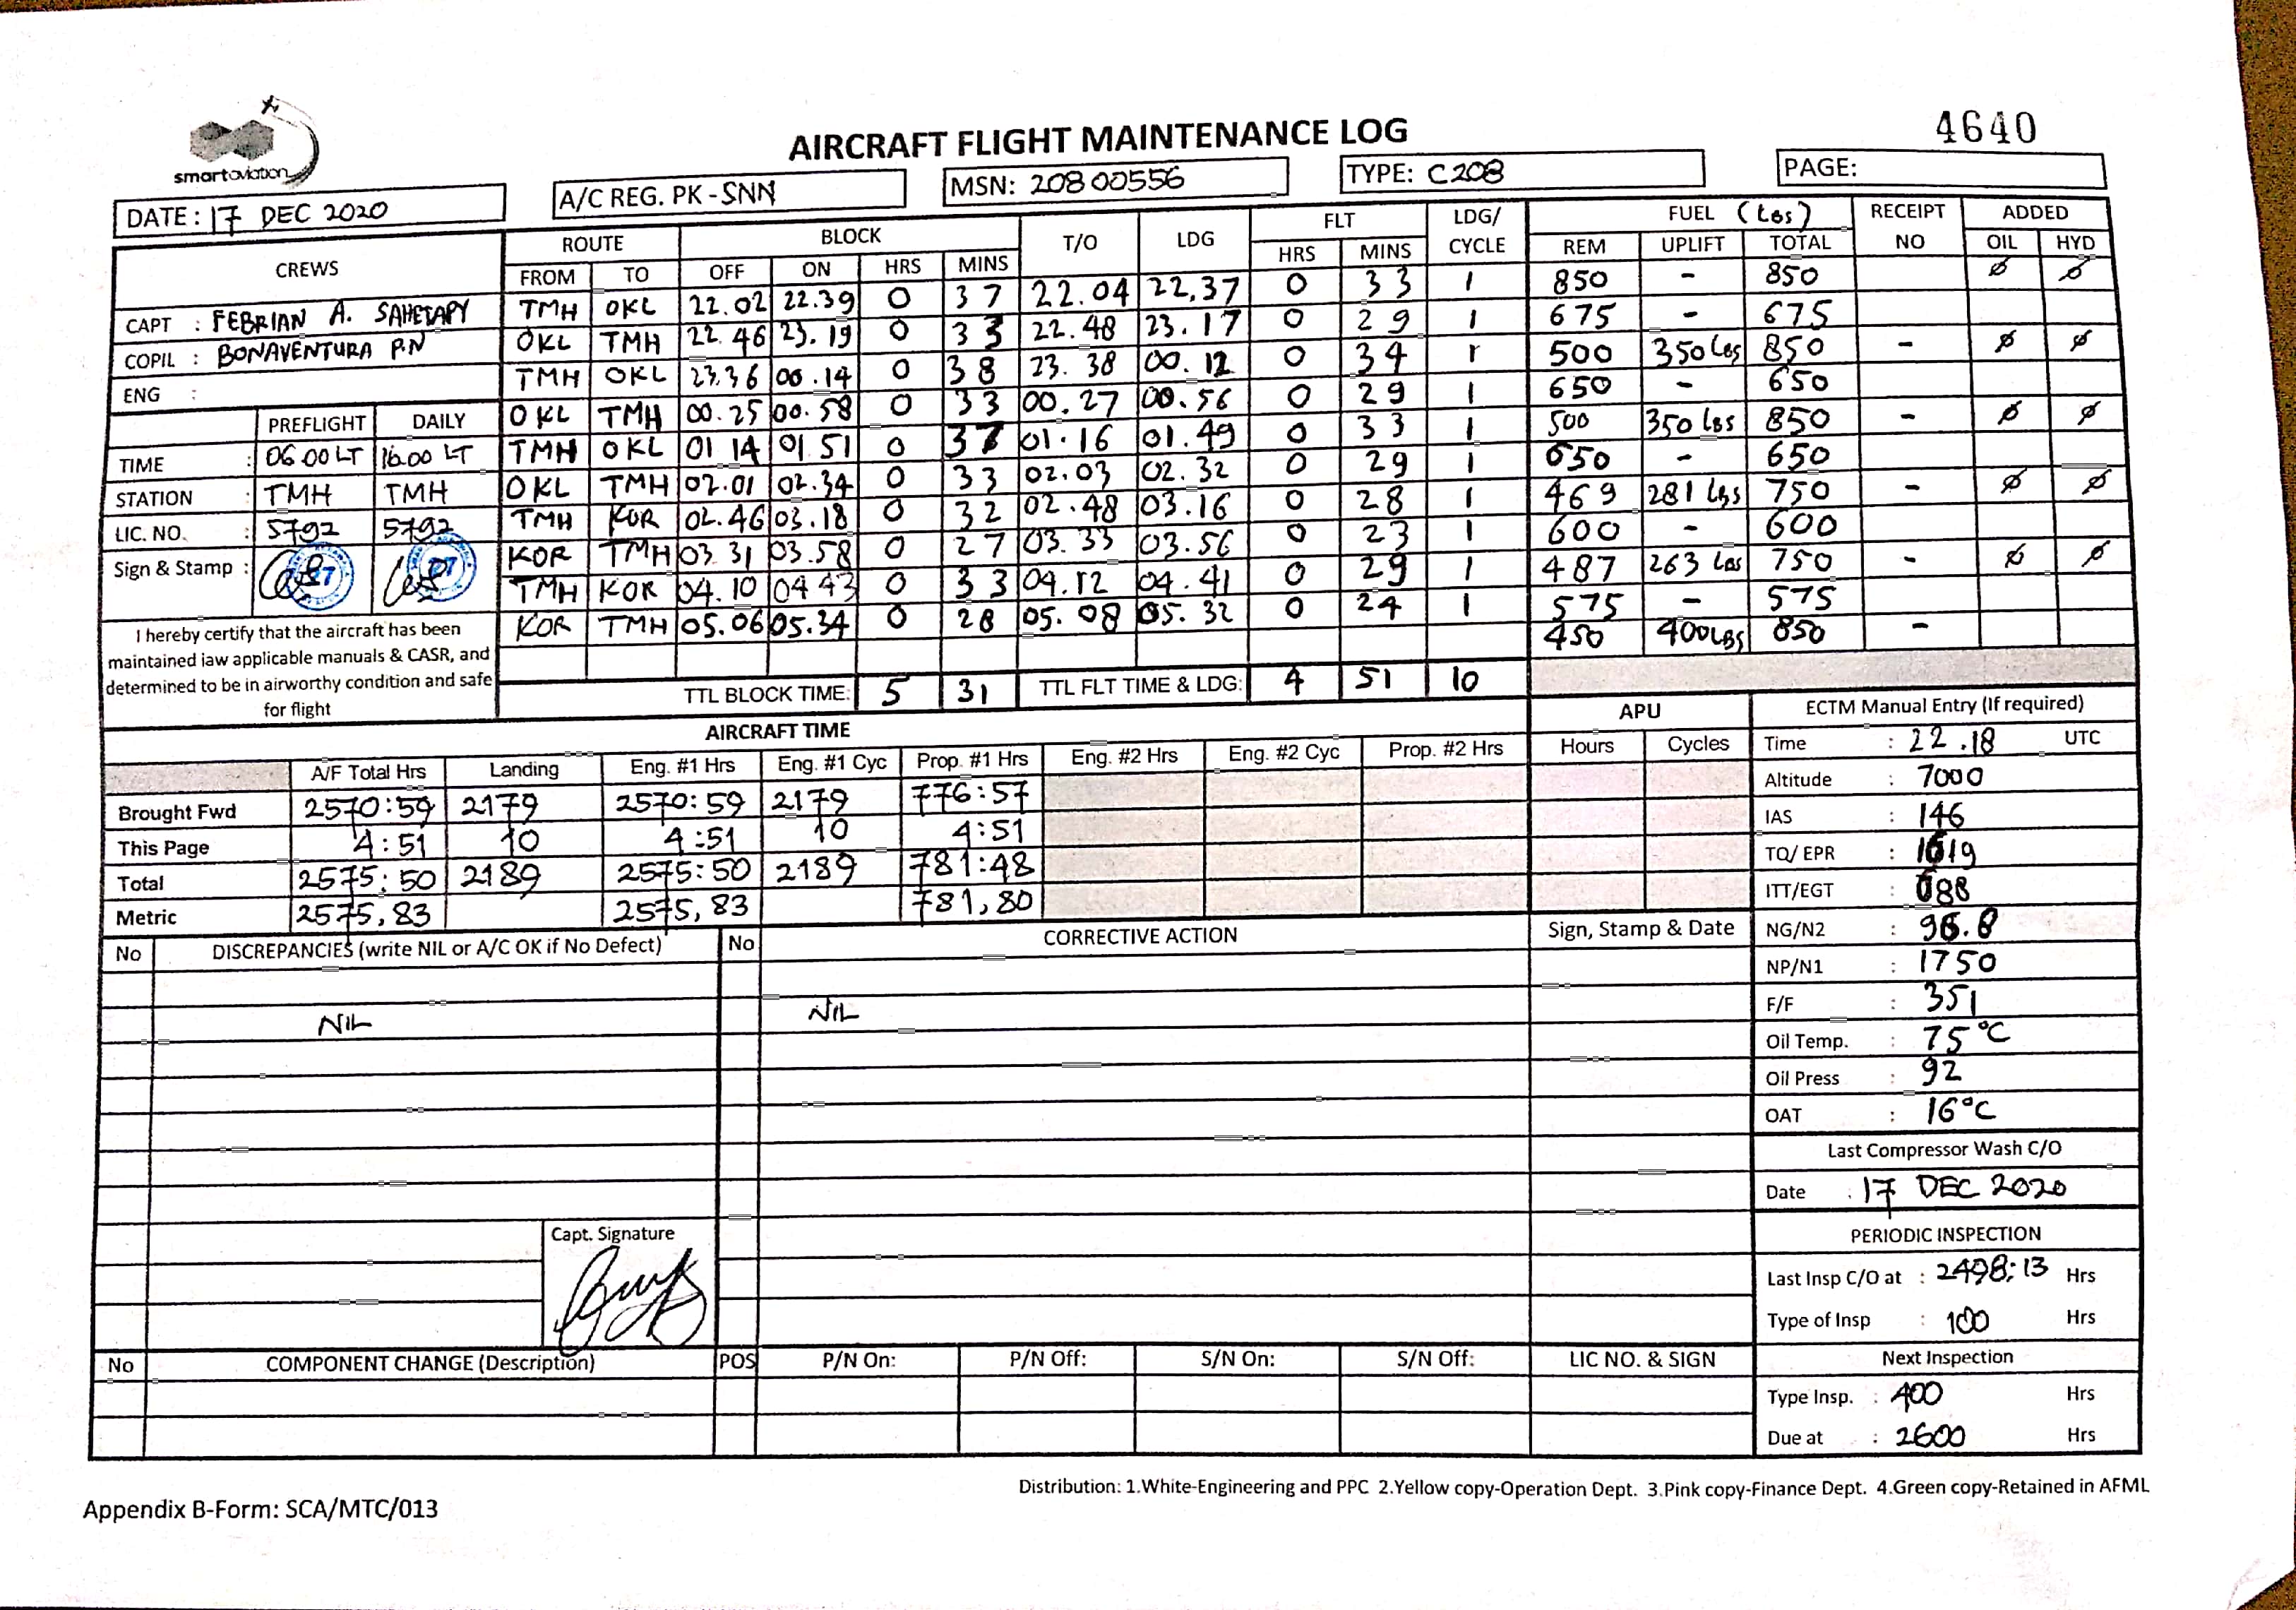 4640
smart aviation
AIRCRAFT FLIGHT MAINTENANCE LOG
DATE: 17 DEC 2020 A/C REG. PK-SNN MSN: 20800556 TYPE: C208 PAGE:
CREWS ROUTE BLOCK T/O LDG FLT LDG/ CYCLE FUEL (Lbs) RECEIPT NO ADDED
FROM TO OFF ON HRS MINS HRS MINS REM UPLIFT TOTAL OIL HYD
CAPT : FEBRIAN A. SAHETAPY
COPIL : BONAVENTURA P.N
ENG :
TMH OKL 22.02 22.39 0 37 22.04 22,37 0 33 1 850 - 850 Ø Ø
OKL TMH 22.46 23.19 0 33 22.48 23.17 0 29 1 675 - 675
TMH OKL 23.36 00.14 0 38 23.38 00.12 0 34 1 500 350 Lbs 850 - Ø Ø
OKL TMH 00.25 00.58 0 33 00.27 00.56 0 29 1 650 - 650
TMH OKL 01 14 01 51 0 37 01.16 01.49 0 33 1 500 350 lbs 850 - Ø Ø
OKL TMH 02.01 02.34 0 33 02.03 02.32 0 29 1 650 - 650
TMH KOR 02.46 03.18 0 32 02.48 03.16 0 28 1 469 281 Lbs 750 - Ø Ø
KOR TMH 03.31 03.58 0 27 03.33 03.56 0 23 1 600 - 600
TMH KOR 04.10 04 43 0 33 04.12 04.41 0 29 1 487 263 Lbs 750 - Ø Ø
KOR TMH 05.06 05.34 0 28 05.08 05.32 0 24 1 575 - 575
450 400LBS 850 -
PREFLIGHT DAILY
TIME : 06.00 LT 16.00 LT
STATION : TMH TMH
LIC. NO. : 5792 5792
Sign & Stamp :
27
27
I hereby certify that the aircraft has been
maintained iaw applicable manuals & CASR, and
determined to be in airworthy condition and safe
for flight
TTL BLOCK TIME: 5 31 TTL FLT TIME & LDG: 4 51 10
AIRCRAFT TIME APU
A/F Total Hrs Landing Eng. #1 Hrs Eng. #1 Cyc Prop. #1 Hrs Eng. #2 Hrs Eng. #2 Cyc Prop. #2 Hrs Hours Cycles
Brought Fwd 2570:59 2179 2570:59 2179 776:57
This Page 4:51 10 4:51 10 4:51
Total 2575:50 2189 2575:50 2189 781:48
Metric 2575,83 2575,83 781,80
ECTM Manual Entry (If required)
Time : 22.18 UTC
Altitude : 7000
IAS : 146
TQ/ EPR : 1619
ITT/EGT : 688
NG/N2 :
NP/N1 : 1750
F/F : 351
Oil Temp. : 75°C
Oil Press : 92
OAT : 16°C
Last Compressor Wash C/O
Date : 17 DEC 2020
PERIODIC INSPECTION
Last Insp C/O at : 2498:13 Hrs
Type of Insp : 100 Hrs
Next Inspection
Type Insp. : 400 Hrs
Due at : 2600 Hrs
No DISCREPANCIES (write NIL or A/C OK if No Defect) No CORRECTIVE ACTION Sign, Stamp & Date
NIL NIL
Capt. Signature
No COMPONENT CHANGE (Description) POS P/N On: P/N Off: S/N On: S/N Off: LIC NO. & SIGN
Distribution: 1.White-Engineering and PPC 2.Yellow copy-Operation Dept. 3.Pink copy-Finance Dept. 4.Green copy-Retained in AFML
Appendix B-Form: SCA/MTC/013